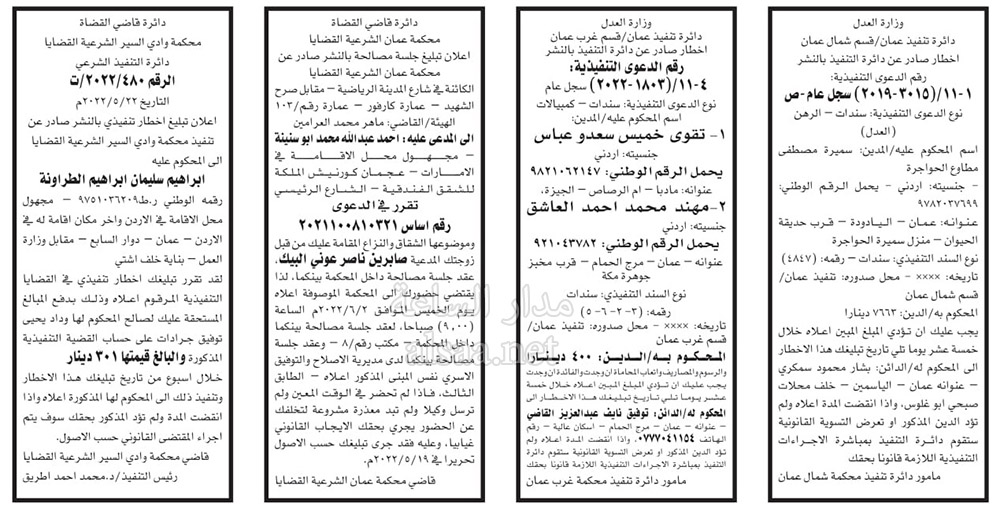 وزارة العدل
دائرة تنفيذ عمان/قسم شمال عمان
اخطار صادر عن دائرة التنفيذ بالنشر
رقم الدعوى التنفيذية:
١١-١/(٣٠١٥-٢٠١٩) سجل عام-ص
نوع الدعوى التنفيذية: سندات - الرهن
(العدل)
اسم المحكوم عليه/المدين: سميرة مصطفى
مطاوع الحواجرة
- جنسيته: اردني - يحمل الرقم الوطني:
٩٧٨٢٠٣٧٦٩٩
عنوانه: عمان - اليادودة - قرب حديقة
الحيوان - منزل سميرة الحواجرة
نوع السند التنفيذي: سندات - رقمه: (٤٨٤٧)
تاريخه: ×××× - محل صدوره: تنفيذ عمان/
قسم شمال عمان
المحكوم به/الدين: ٧٦٦٣ دينارا
يجب عليك ان تؤدي المبلغ المبين اعلاه خلال
خمسة عشر يوما تلي تاريخ تبليغك هذا الاخطار
الى المحكوم له/الدائن: بشار محمود سمكري
- عنوانه عمان - الياسمين - خلف محلات
صبحي ابو غلوس، واذا انقضت المدة ولم
تؤد الدين المذكور او تعرض التسوية القانونية
ستقوم دائرة التنفيذ بمباشرة الاجراءات
التنفيذية اللازمة قانونا بحقك
مامور دائرة تنفيذ محكمة شمال عمان
وزارة العدل
دائرة تنفيذ عمان/قسم غرب عمان
اخطار صادر عن دائرة التنفيذ بالنشر
رقم الدعوى التنفيذية:
١١-٤/(١٨٠٣-٢٠٢٢) سجل عام
نوع الدعوى التنفيذية: سندات - كمبيالات
اسم المحكوم عليه/المدين:
١- تقوى خميس سعدو عباس
جنسيته: اردني
يحمل الرقم الوطني: ٩٨٢١٠٦٢١٤٧
عنوانه: مادبا - ام الرصاص - الجيزة،
٢- مهند محمد احمد العاشق
جنسيته: اردني
يحمل الرقم الوطني: ٩٢١٠٤٣٧٨٢
عنوانه - عمان - مرج الحمام - قرب مخبز
جوهرة مكة
نوع السند التنفيذي: سندات
رقمه: (٣-٢-٦-٥)
تاريخه: ×××× - محل صدوره: تنفيذ عمان/
المحكوم به/الدين: ٤٠٠ دينار
والرسوم والمصاريف واتعاب المحاماة ان وجدت والفائدة ان وجدت
يجب عليك ان تؤدي المبلغ المبين اعلاه خلال خمسة
عشر يوما تلي تاريخ تبليغك هذا الاخطار الى
المحكوم له/الدائن: توفيق نايف عبدالعزيز القاضي
- عنوانه - عمان - مرج الحمام - اسكان عالية - رقم
الهاتف ٠٧٧٧٠٤١١٥٤ واذا انقضت المدة اعلاه ولم
تؤد الدين المذكور او تعرض التسوية القانونية ستقوم دائرة
التنفيذ بمباشرة الاجراءات التنفيذية اللازمة قانونا بحقك
مامور دائرة تنفيذ محكمة غرب عمان
دائرة قاضي القضاة
محكمة عمان الشرعية القضايا
اعلان تبليغ جلسة مصالحة بالنشر صادر عن
محكمة عمان الشرعية القضايا
الكائنة في شارع المدينة الرياضية - مقابل صرح
الشهيد - عمارة كارفور - عمارة رقم/١٠٣
الهيئة/القاضي: ماهر محمد العرامين
الى المدعى عليه: احمد عبدالله محمد ابو سنينة
- مجهول محل الاقامة في
الامارات - عجمان كورنيش الملكة
للشقق الفندقية - الشارع الرئيسي
تقرر في الدعوى
رقم اساس ٢٠٢١١٠٠٨١٠٣٢١
وموضوعها الشقاق والنزاع المقامة عليك من قبل
زوجتك المدعية صابرين ناصر عوني البيك،
عقد جلسة مصالحة داخل المحكمة بينكما، لذا
يقتضي حضورك الى المحكمة الموصوفة اعلاه
يوم الخميس الموافق ٢٠٢٢/٦/٢م الساعة
(٩,٠٠) صباحا، لعقد جلسة مصالحة بينكما
داخل المحكمة - مكتب رقم/٨ - وعقد جلسة
مصالحة بينكما لدى مديرية الاصلاح والتوفيق
الاسري نفس المبنى المذكور اعلاه - الطابق
الثالث، فاذا لم تحضر في الوقت المعين ولم
ترسل وكيلا ولم تبد معذرة مشروعة لتخلفك
عن الحضور يجري بحقك الايجاب القانوني
غيابيا، وعليه فقد جرى تبليغك حسب الاصول
تحريرا في ٢٠٢٢/٥/١٩م.
قاضي محكمة عمان الشرعية القضايا
دائرة قاضي القضاة
محكمة وادي السير الشرعية القضايا
دائرة التنفيذ الشرعي
الرقم ٢٠٢٢/٤٨٠/ت
التاريخ ٢٠٢٢/٥/٢٢م
اعلان تبليغ اخطار تنفيذي بالنشر صادر عن
تنفيذ محكمة وادي السير الشرعية القضايا
الى المحكوم عليه
ابراهيم سليمان ابراهيم الطراونة
رقمه الوطني ر.ط٩٧٥١٠٣٦٢٠٩ - مجهول
محل الاقامة في الاردن واخر مكان اقامة له في
الاردن - عمان - دوار السابع - مقابل وزارة
العمل - بناية خلف اشتي
لقد تقرر تبليغك اخطار تنفيذي في القضايا
التنفيذية المرقوم اعلاه وذلك بدفع المبالغ
المستحقة عليك لصالح المحكوم لها وداد يحيى
توفيق جرادات على حساب القضية التنفيذية
المذكورة والبالغ قيمتها ٣٠١ دينار
خلال اسبوع من تاريخ تبليغك هذا الاخطار
وتنفيذ ذلك الى المحكوم لها المذكورة اعلاه واذا
انقضت المدة ولم تؤد المذكور بحقك سوف يتم
اجراء المقتضى القانوني حسب الاصول.
قاضي محكمة وادي السير الشرعية القضايا
رئيس التنفيذ/د.محمد احمد اطريق
مدار الساعة
alsaa.net